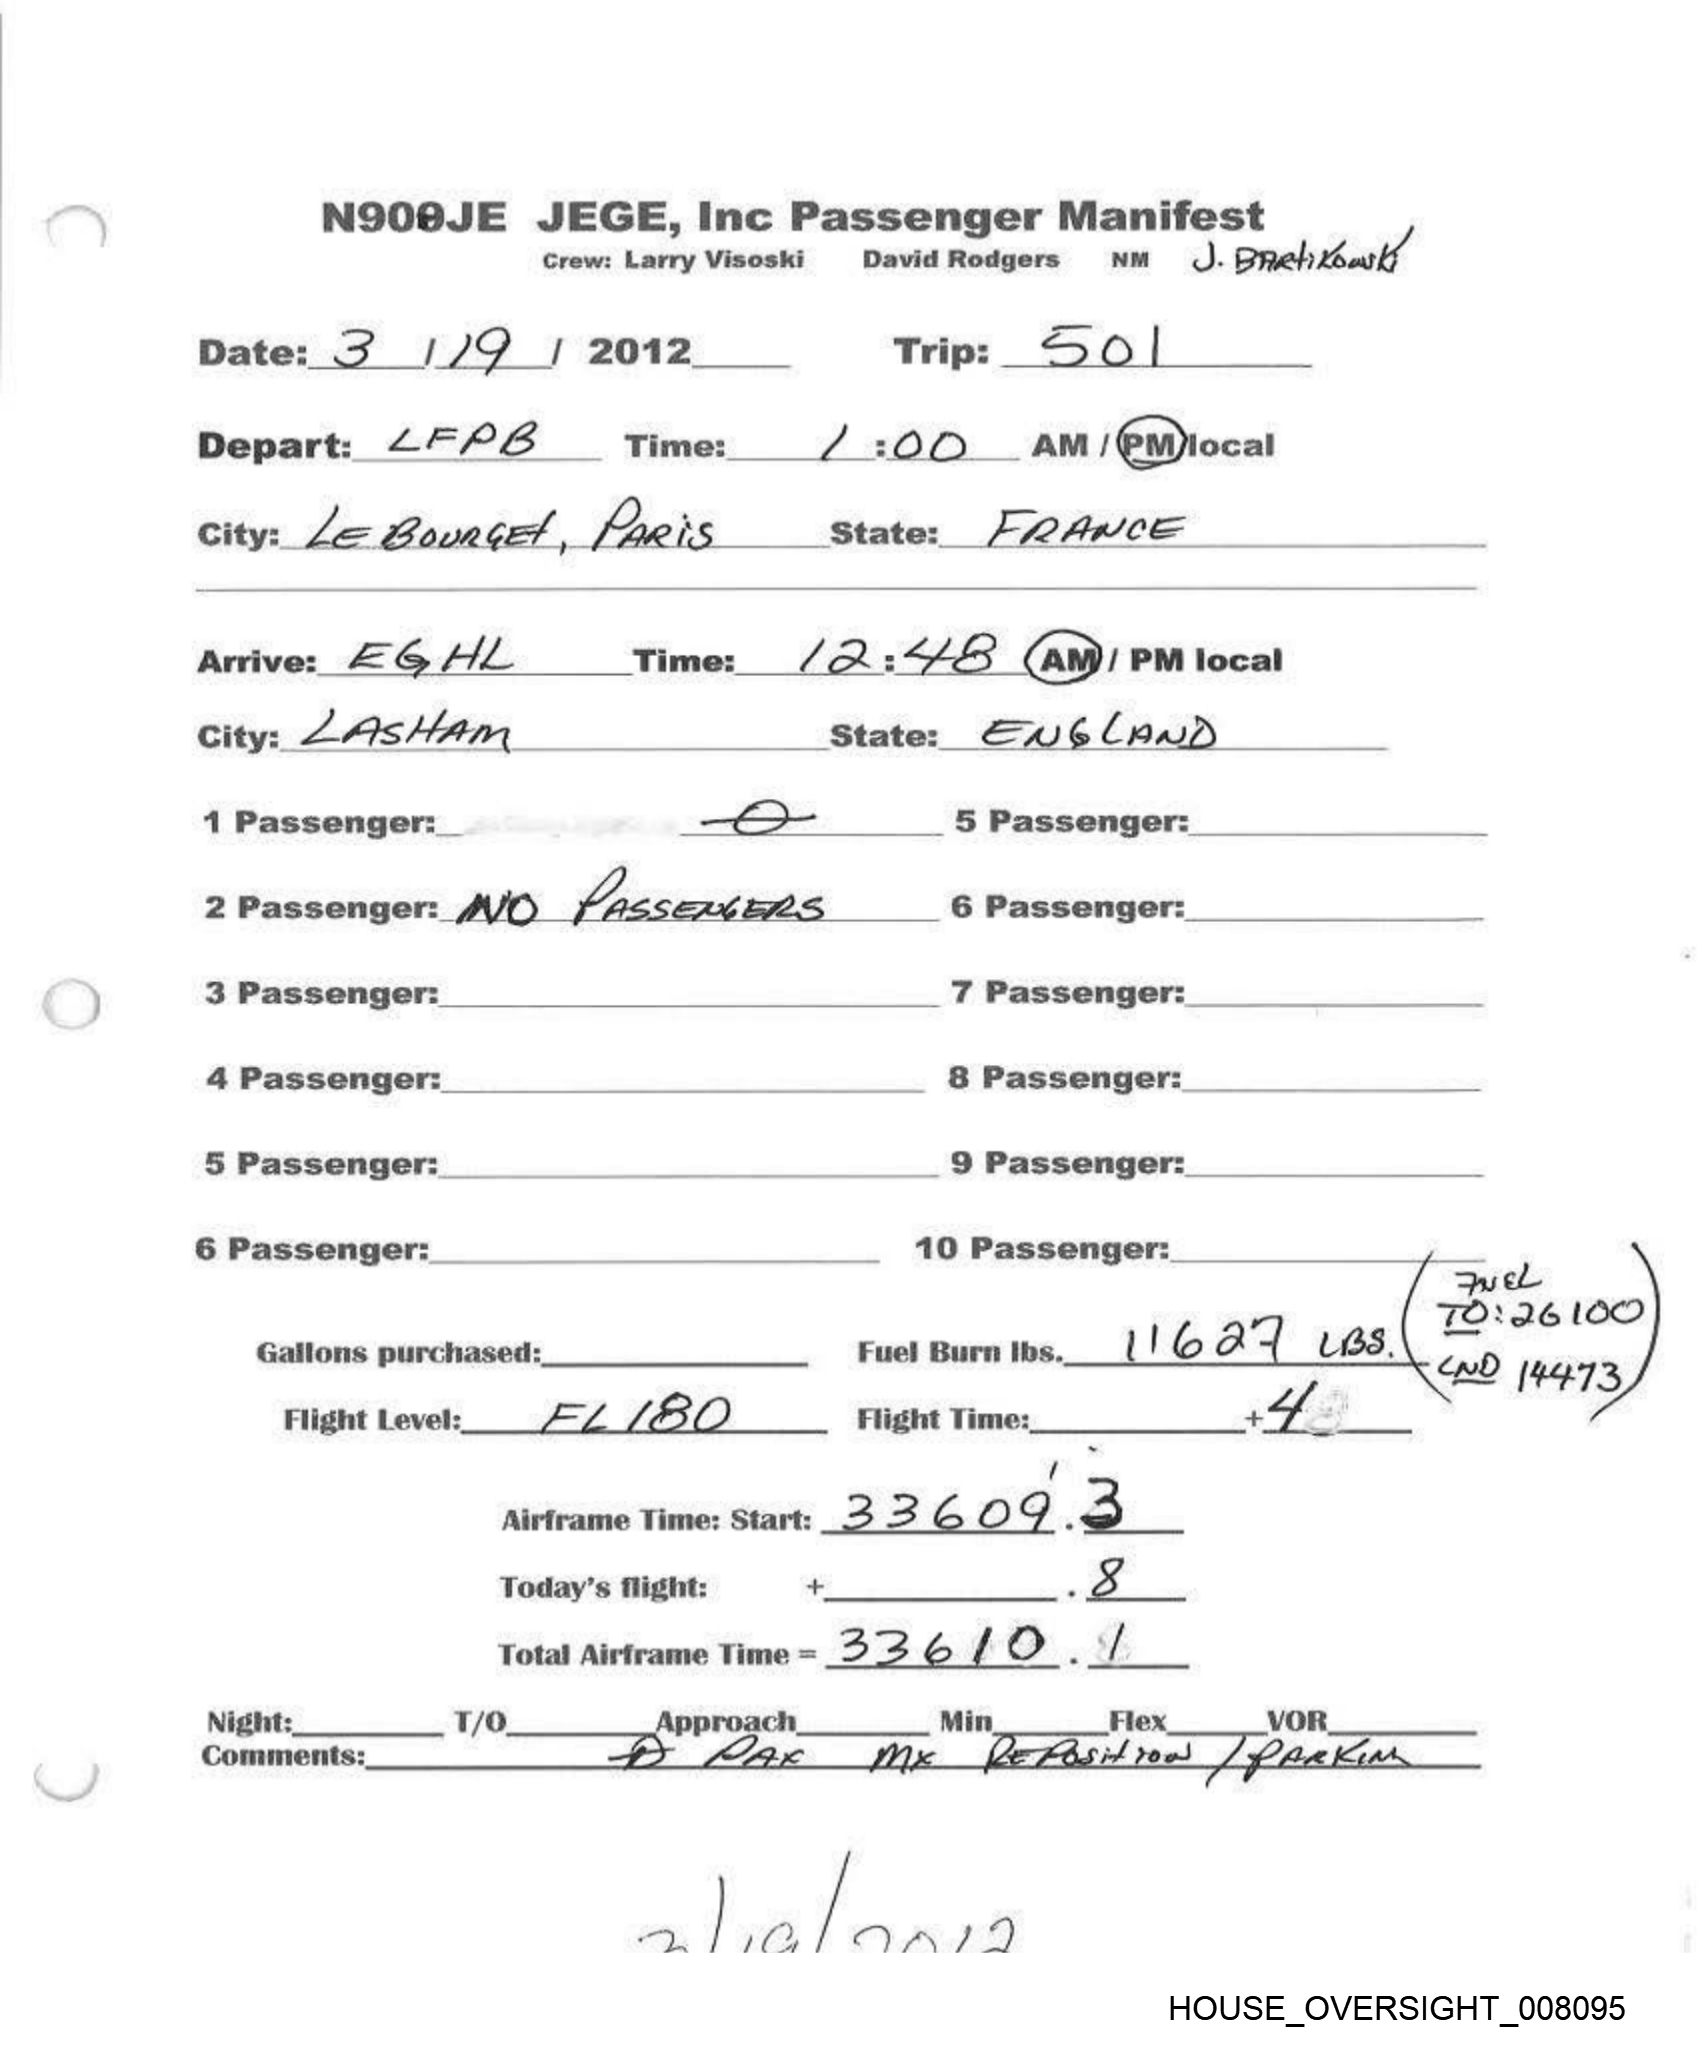 N900JE JEGE, Inc Passenger Manifest
Crew: Larry Visoski David Rodgers NM J. BARtiKowski
Date: 3 / 19 / 2012 Trip: 501
Depart: LFPB Time: 1 :00 AM / PM local
City: LE BOURGEt, PARiS State: FRANCE
Arrive: EGHL Time: 12:48 AM / PM local
City: LASHAM State: ENGLAND
1 Passenger: 0 5 Passenger:
2 Passenger: NO PASSENGERS 6 Passenger:
3 Passenger: 7 Passenger:
4 Passenger: 8 Passenger:
5 Passenger: 9 Passenger:
6 Passenger: 10 Passenger:
FUEL
TO: 26100
Gallons purchased: Fuel Burn lbs. 11627 LBS.
LND 14473
Flight Level: FL180 Flight Time: +4
Airframe Time: Start: 33609.3
Today's flight: + .8
Total Airframe Time = 33610.1
Night: T/O Approach Min Flex VOR
Comments: 0 PAX MX REPOSitION / PARKING
3/19/2012
HOUSE_OVERSIGHT_008095